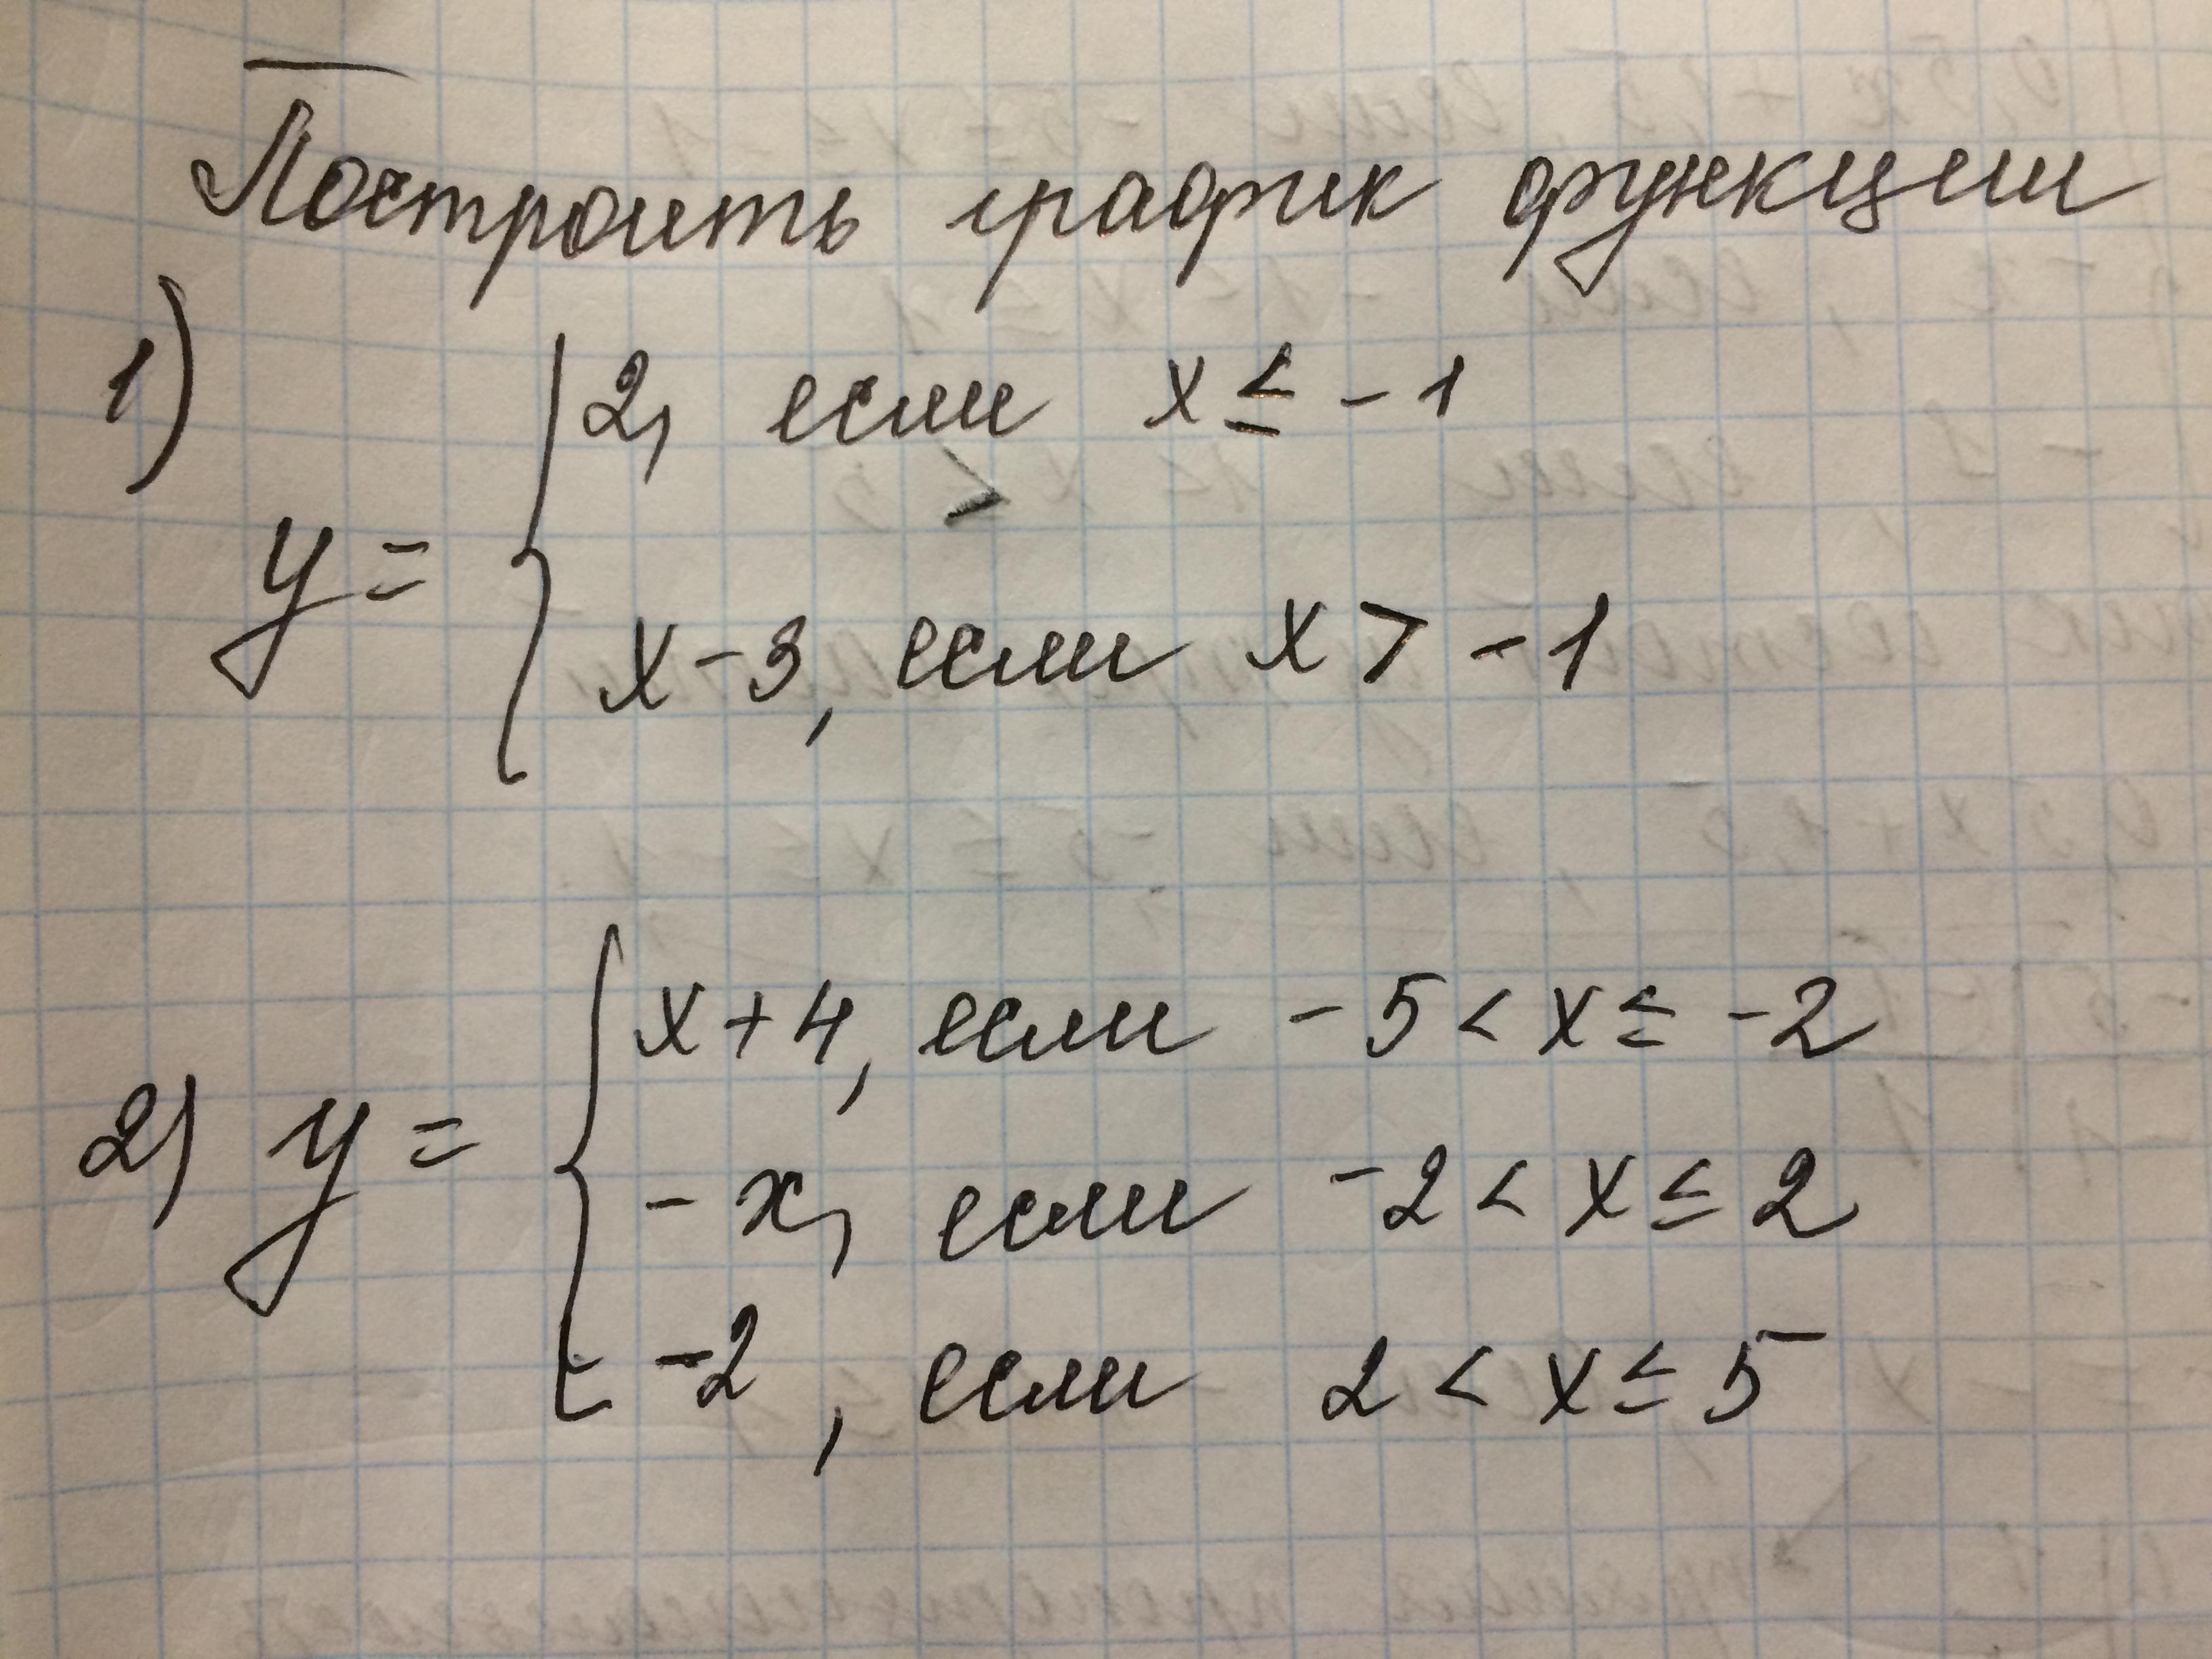 Построить график функции
1)
2, если x ≤ -1
>
y = {
x-3, если x > -1
x+4, если -5 < x ≤ -2
2) y = {
-x, если -2 < x ≤ 2
-2, если 2 < x ≤ 5